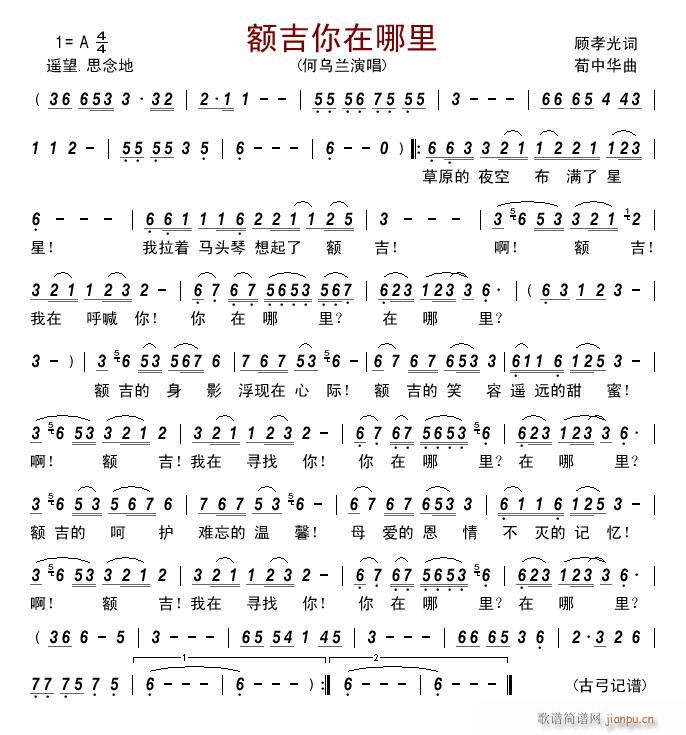 额吉你在哪里
1= A 4/4
顾孝光词
遥望.思念地
(何乌兰演唱)
荀中华曲
( 36 653 3· 32 | 2·1 1 - - | 55 56 75 55 | 3 - - - | 66 65 4 43 |
1 1 2 - | 55 55 3 5 | 6 - - - | 6 - - 0 ) ‖: 6 63 3 21 | 1 21 221 123 |
草原的 夜空 布 满了 星
6 - - - | 6 61 116 221 | 1 25 | 3 - - - | 3 56 53 321 12 |
星! 我拉着 马头琴 想起了 额 吉! 啊! 额 吉!
321 123 2 - | 67 67 5653 567 | 623 123 3 6· | ( 6 3 1 2 3 - |
我在 呼喊 你! 你 在 哪 里? 在 哪 里?
3 - ) | 3 56 53 567 6 | 7 67 653 3 | 67 67 653 3 | 611 6 125 3 |
额 吉的 身 影 浮现在 心 际! 额 吉的 笑 容 遥 远的甜 蜜!
3 56 53 321 2 - | 321 123 2 - | 67 67 5653 56 | 623 123 3 6· |
啊! 额 吉! 我在 寻找 你! 你 在 哪 里? 在 哪 里?
3 56 53 567 6 | 7 67 653 56 | 67 67 653 3 | 6 61 6 125 3 |
额 吉的 呵 护 难忘的 温 馨! 母 爱的 恩 情 不 灭的 记 忆!
3 56 53 321 2 - | 321 123 2 - | 67 67 5653 56 | 623 123 3 6· |
啊! 额 吉! 我在 寻找 你! 你 在 哪 里? 在 哪 里?
( 36 6 - 5 | 3 - - - | 65 54 1 45 | 3 - - - | 66 65 3 6· |
77 75 7 5 | 6 - - - | 6 - - - ) :‖ 6 - - - | 6 - - - ‖
1
2
(古弓记谱)
歌谱简谱网
jianpu.cn